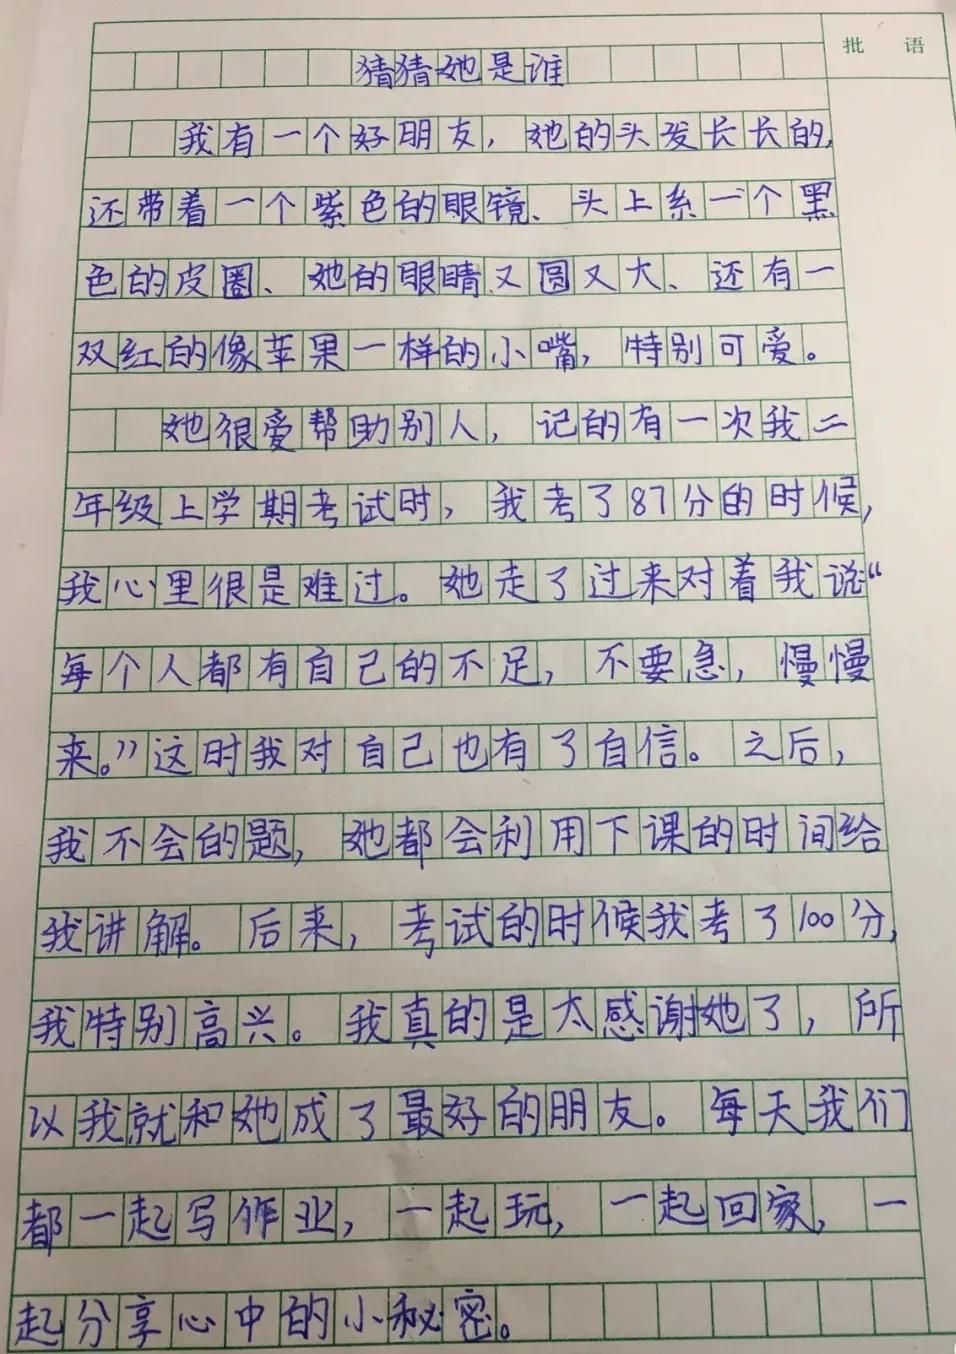 批 语
猜猜她是谁
我有一个好朋友，她的头发长长的，
还带着一个紫色的眼镜、头上系一个黑
色的皮圈、她的眼睛又圆又大、还有一
双红的像苹果一样的小嘴，特别可爱。
她很爱帮助别人，记的有一次我二
年级上学期考试时，我考了87分的时候，
我心里很是难过。她走了过来对着我说“
每个人都有自己的不足，不要急，慢慢
来。”这时我对自己也有了自信。之后，
我不会的题，她都会利用下课的时间给
我讲解。后来，考试的时候我考了100分，
我特别高兴。我真的是太感谢她了，所
以我就和她成了最好的朋友。每天我们
都一起写作业，一起玩，一起回家，一
起分享心中的小秘密。